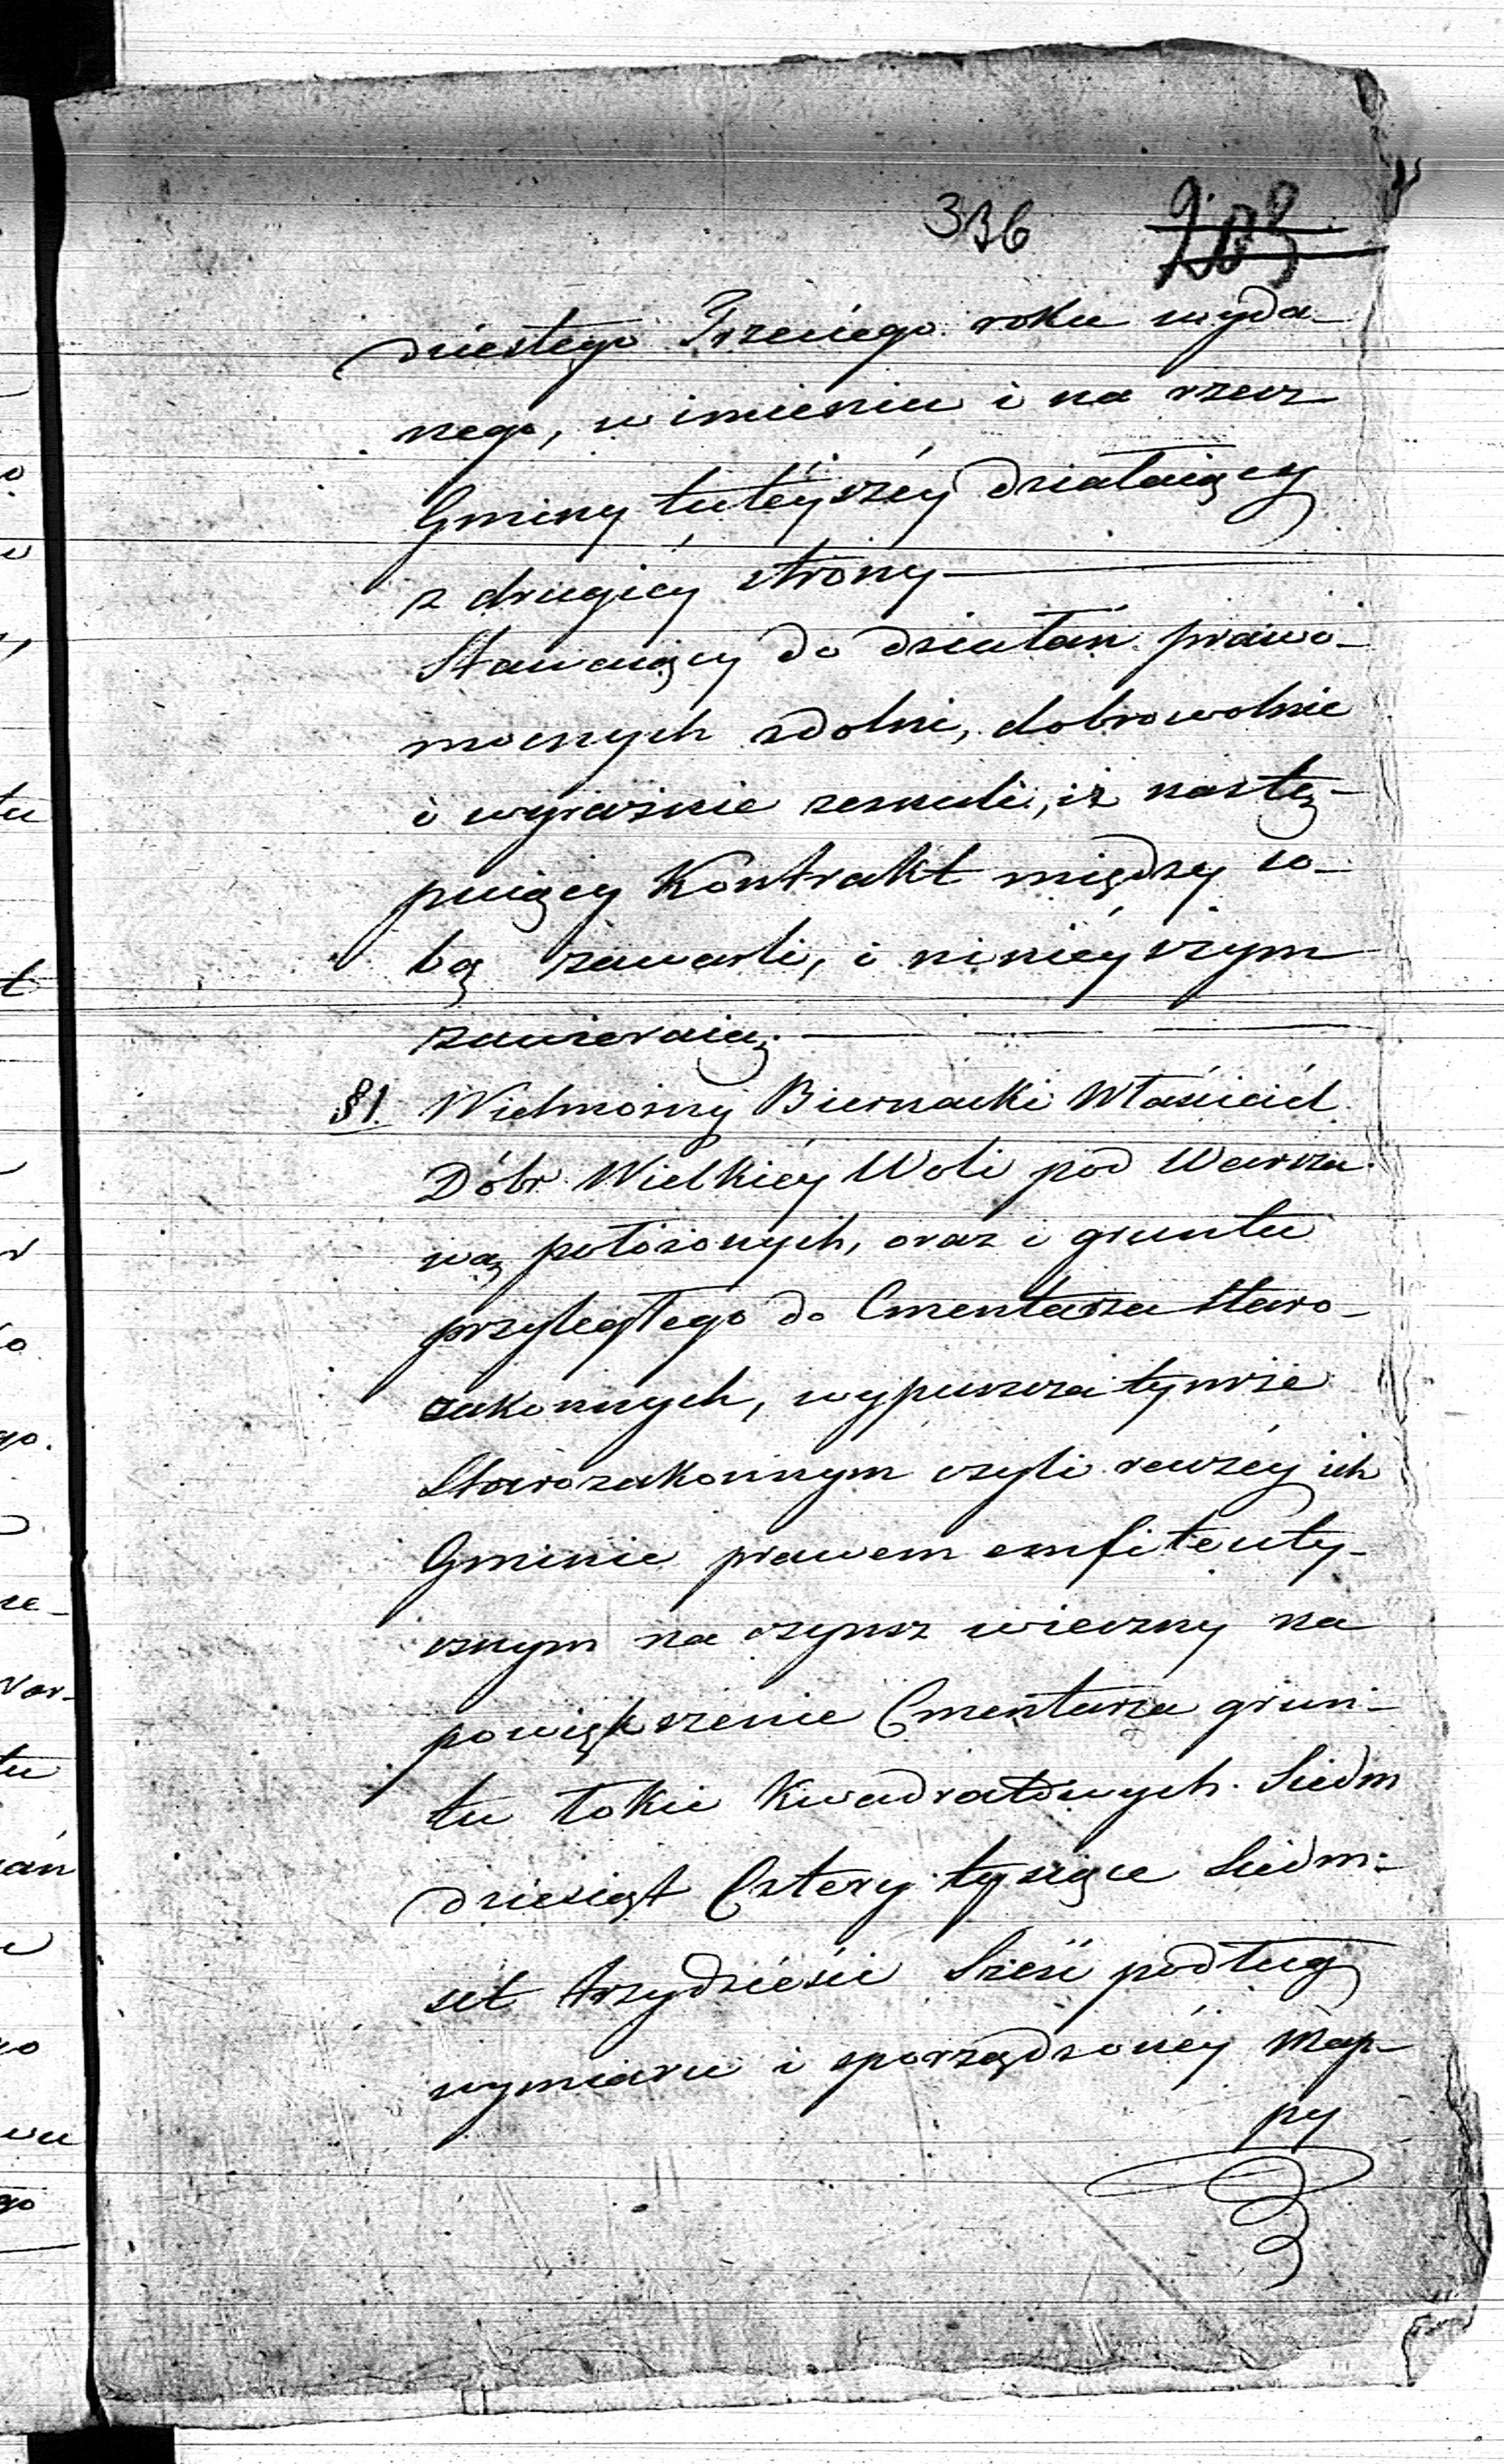 336 203
dziestego Trzeciego roku wyda-
nego, w imieniu i na rzecz
Gminy tuteyszéy działaiący
z drugiéy strony
Stawaiący do działań prawo-
mocnych zdolni, dobrowolnie
i wyraźnie zeznali, iż nastę-
puiący Kontrakt między so-
bą zawarli, i ninieyszym
zawieraią.
§1. Wielmożny Biernacki Właściciel
Dóbr Wielkiéy Woli pod Warsza-
wą położonych, oraz i gruntu
przyległego do Cmentarza Staro-
zakonnych, wypuszcza tymże
Starozakonnym czyli raczéy ich
Gminie prawem emfiteuty-
cznym na czynsz wieczny na
powiększenie Cmentarza grun-
tu łokci kwadratowych Siedm
dziesiąt Cztery tysiące Siedm-
set trzydzieści Sześć podług
wymiaru i sporządzonéy Map-
py